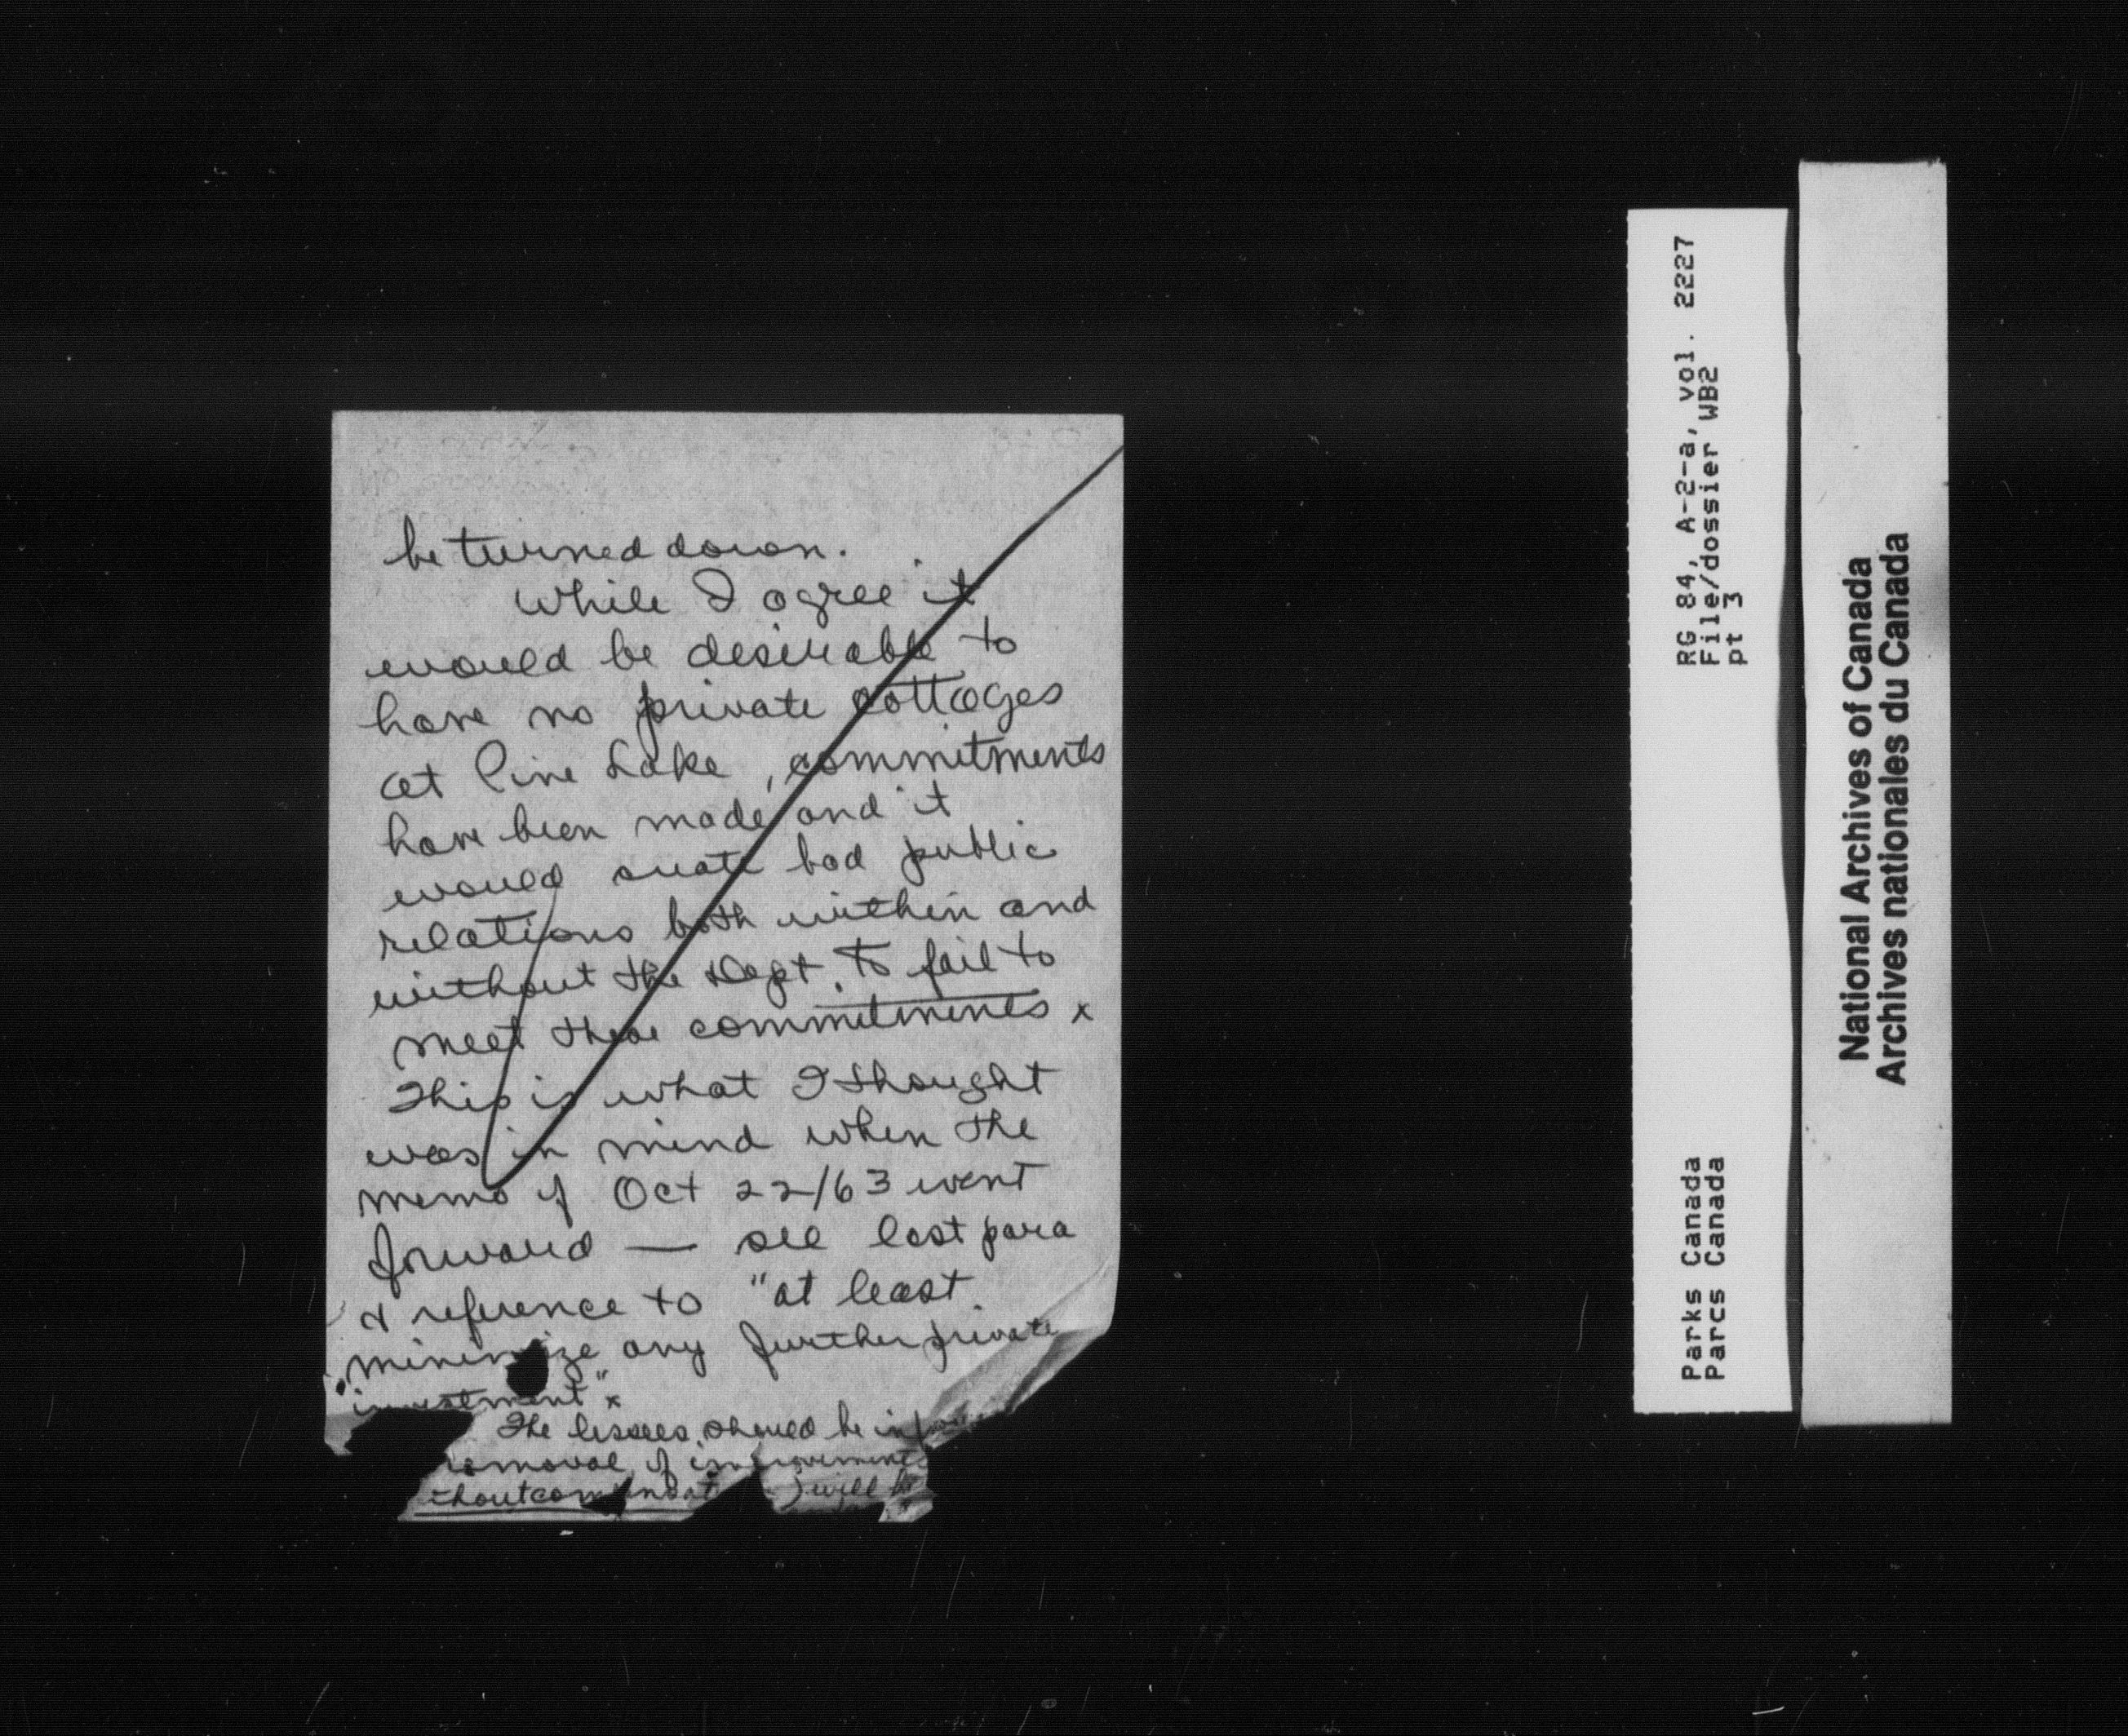 be turned down.
While I agree it
would be desirable to
have no private cottages
at Pine Lake, commitments
have been made and it
would create bad public
relations both within and
without the Dept. to fail to
meet these commitments x
This is what I thought
was in mind when the
memo of Oct 22/63 went
forward — see last para
& reference to "at least
minimize any further private
investment" x
The lessees should be
removal of improvements
will be
RG 84, A-2-a, vol. 2227
File/dossier WB2
pt 3
Parks Canada
Parcs Canada
National Archives of Canada
Archives nationales du Canada